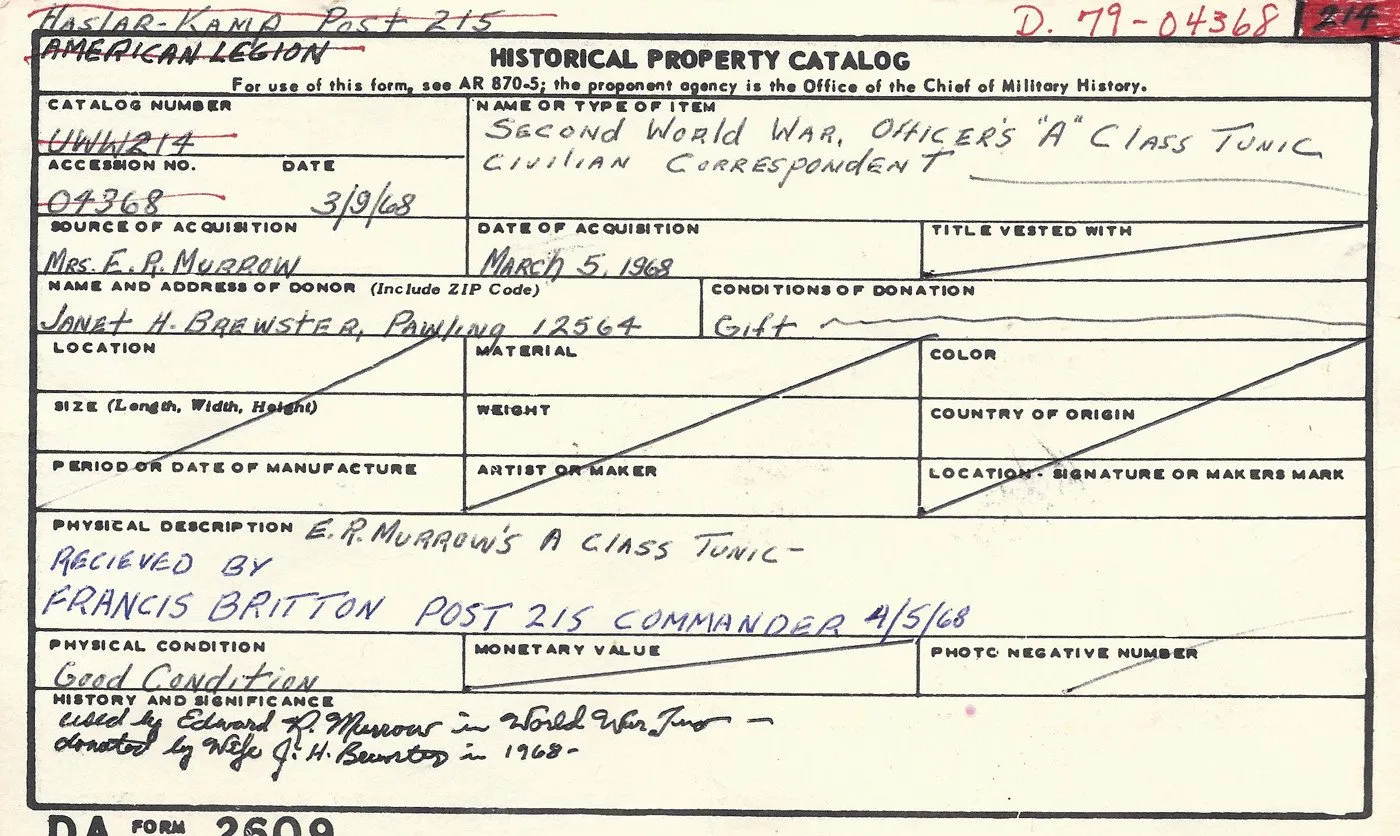 HASLAR-KAMP POST 215
D. 79-04368
214
AMERICAN LEGION
HISTORICAL PROPERTY CATALOG
For use of this form, see AR 870-5; the proponent agency is the Office of the Chief of Military History.
CATALOG NUMBER
UWW214
NAME OR TYPE OF ITEM
SECOND WORLD WAR, OFFICER'S "A" CLASS TUNIC
CIVILIAN CORRESPONDENT
ACCESSION NO. DATE
04368 3/9/68
SOURCE OF ACQUISITION
MRS. E. R. MURROW
DATE OF ACQUISITION
MARCH 5, 1968
TITLE VESTED WITH
NAME AND ADDRESS OF DONOR (Include ZIP Code)
JANET H. BREWSTER, PAWLING 12564
CONDITIONS OF DONATION
Gift
LOCATION
MATERIAL
COLOR
SIZE (Length, Width, Height)
WEIGHT
COUNTRY OF ORIGIN
PERIOD OR DATE OF MANUFACTURE
ARTIST OR MAKER
LOCATION - SIGNATURE OR MAKERS MARK
PHYSICAL DESCRIPTION E.R. MURROW'S A CLASS TUNIC-
RECIEVED BY
FRANCIS BRITTON POST 215 COMMANDER 4/5/68
PHYSICAL CONDITION
Good Condition
MONETARY VALUE
PHOTO NEGATIVE NUMBER
HISTORY AND SIGNIFICANCE
used by Edward R. Murrow in World War Two -
donated by Wife J. H. Brewster in 1968-
DA FORM 2609